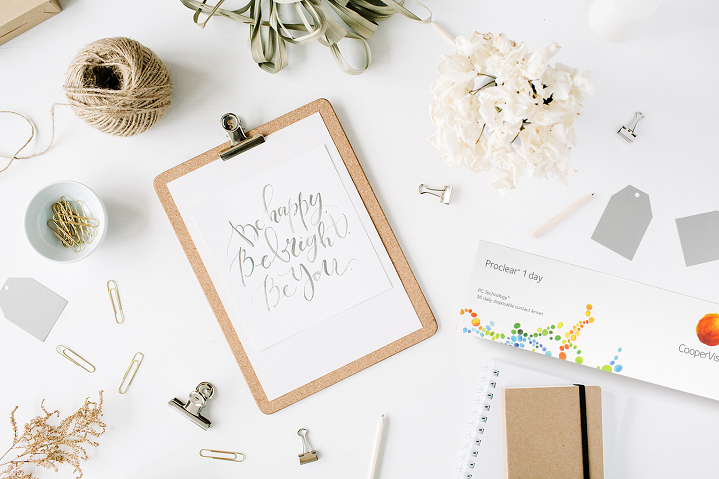 Be happy
Be bright.
Be You.
Proclear® 1 day
PC Technology™
30 daily disposable contact lenses
CooperVis